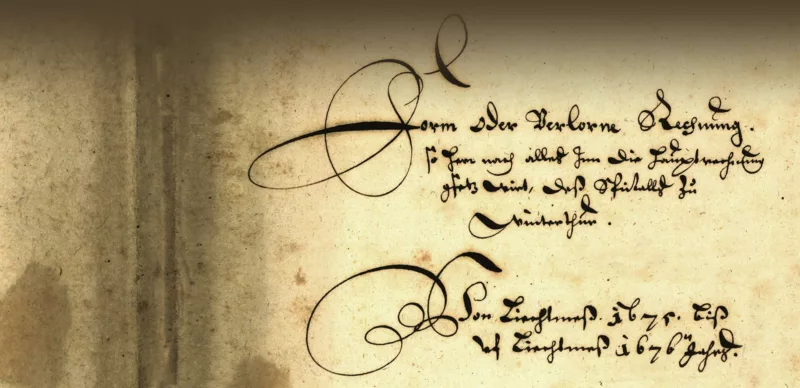 Form oder Verlorne Rechnung.
so hern nach alles Inn die Hauptrechnung
gsetz wirt, deß Spitalß zu
Winterthur.
Von Liechtmeß. 1675. biß
uf Liechtmeß 1676 Jahrß.